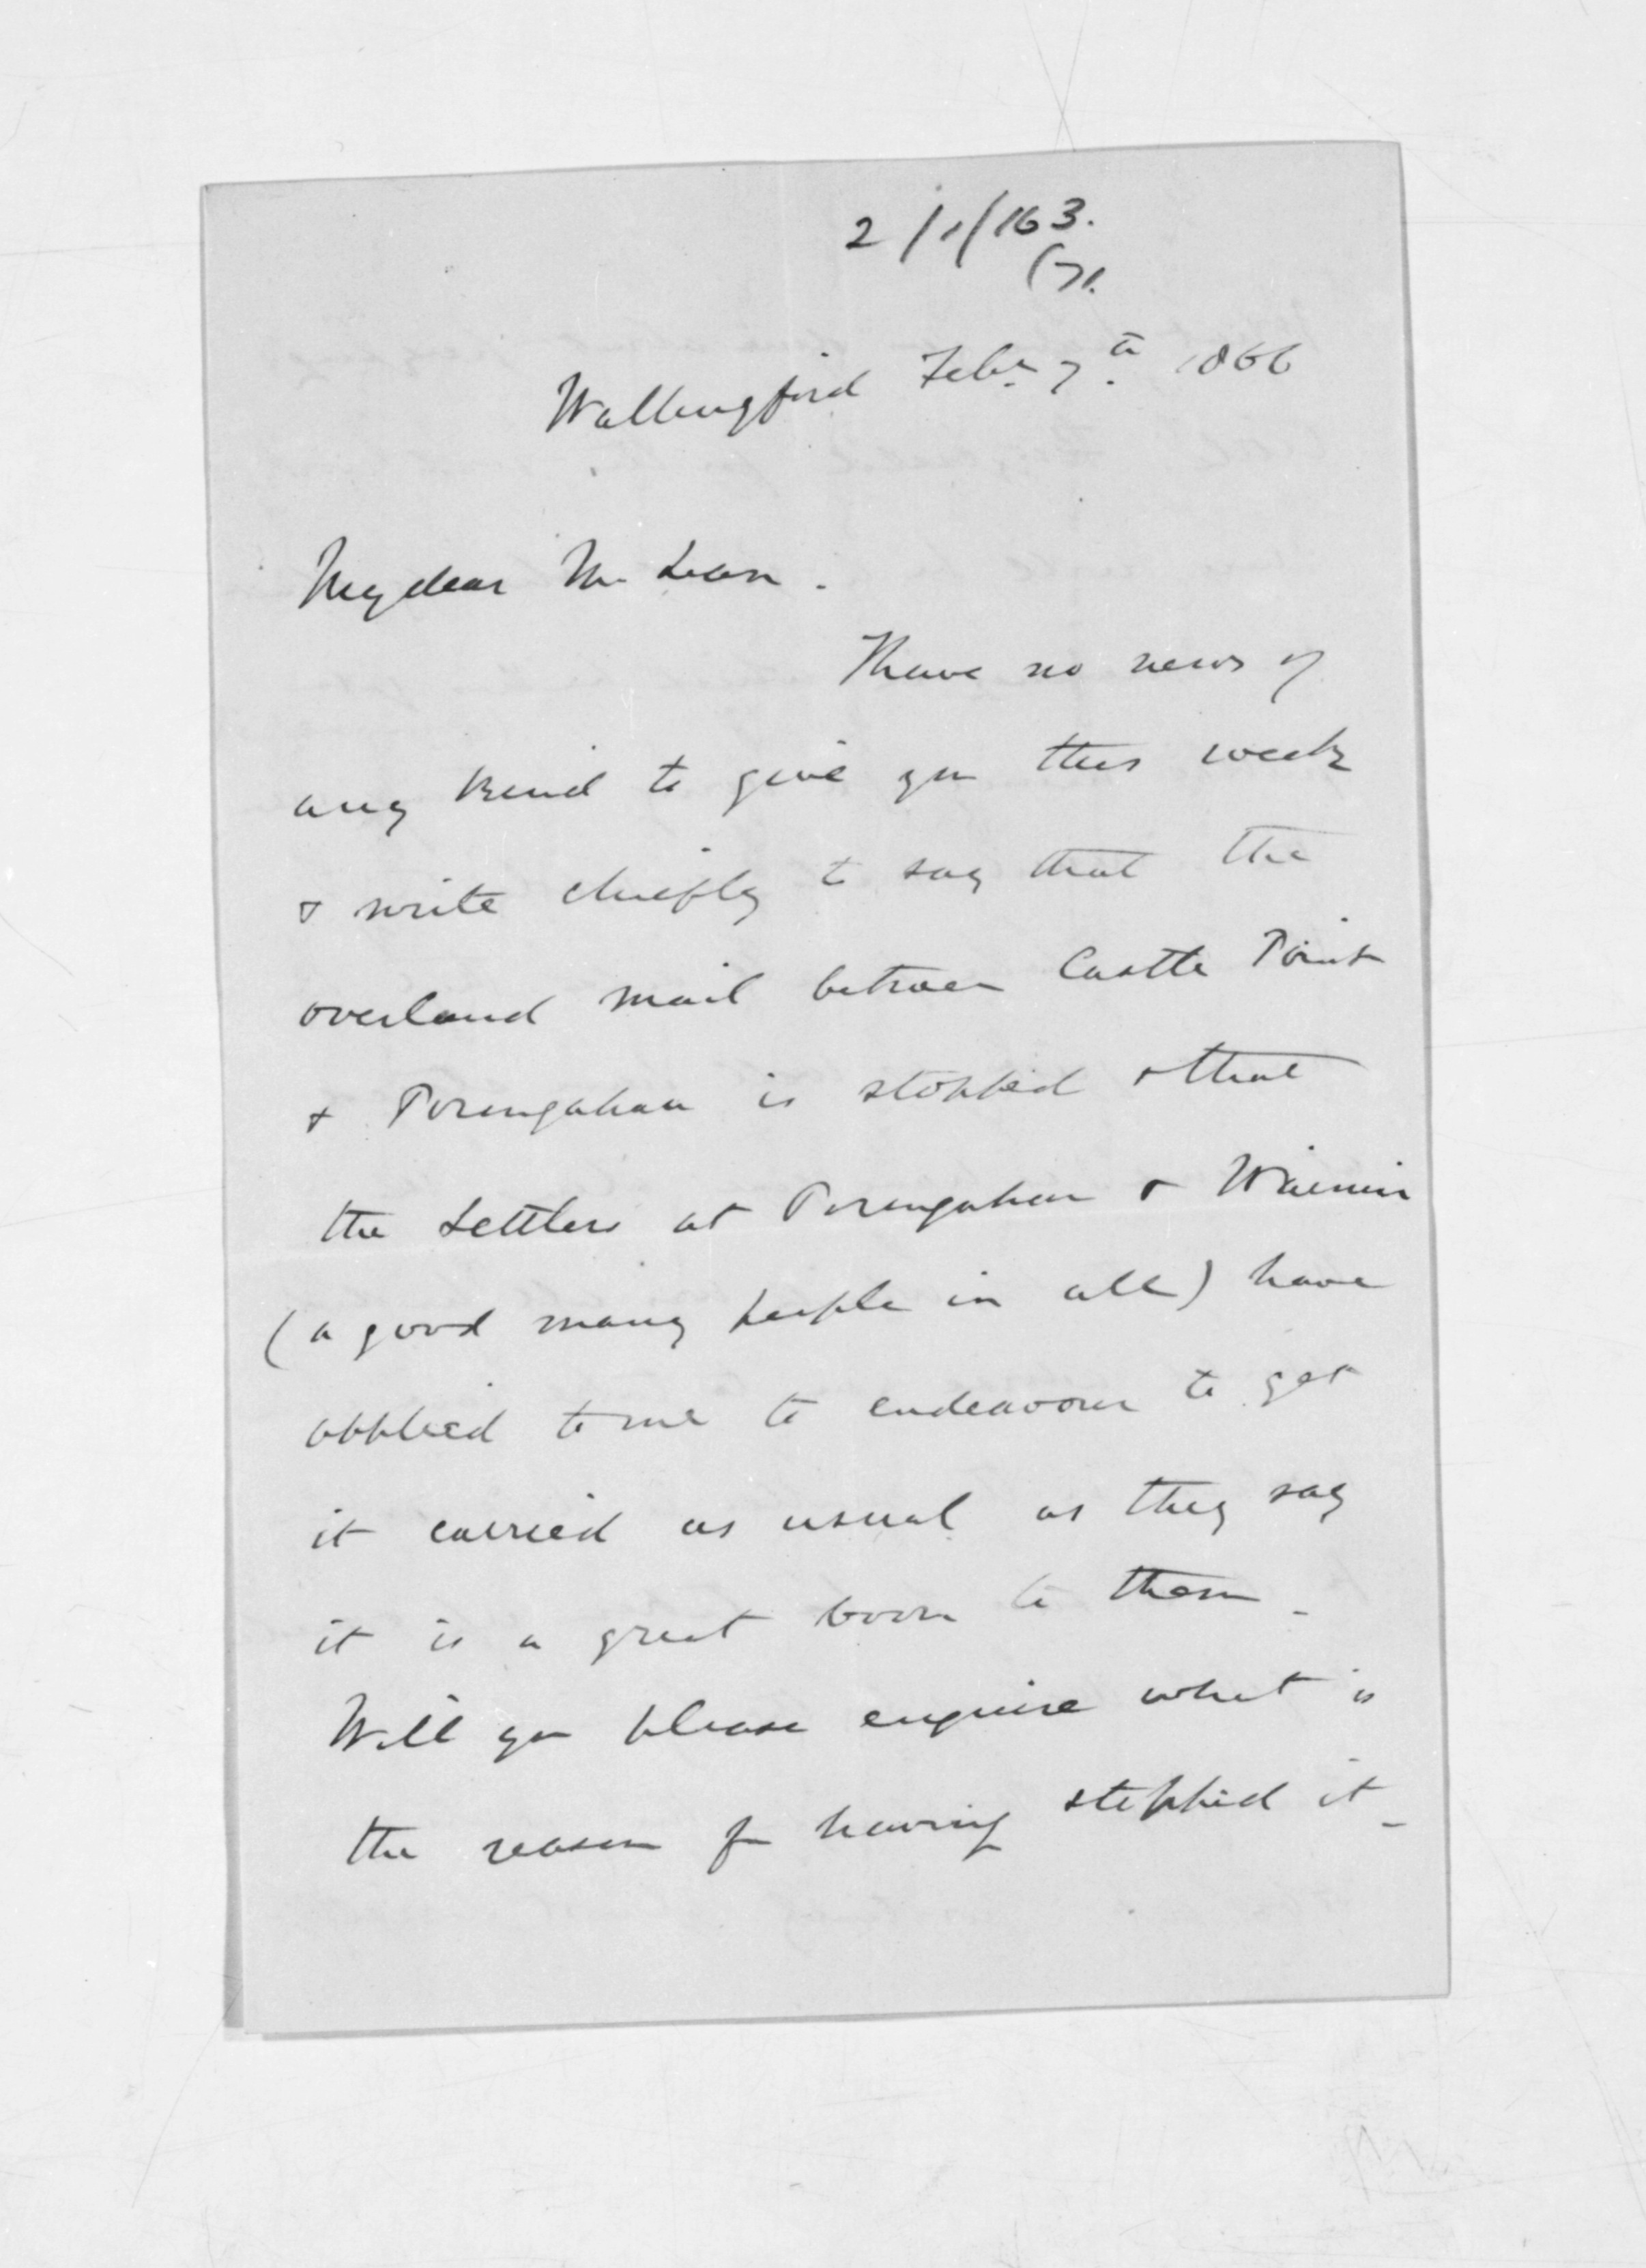 2/1/163.
(71.
Wallingford Feby. 7th. 1866
My dear McLean.
I have no news of
any kind to give you this week
& write chiefly to say that the
overland mail between Castle Point
& Porongahau is stopped & that
the Settlers at Porongahau & Wainui
(a good many people in all) have
applied to me to endeavour to get
it carried as usual as they say
it is a great boon to them -
Will you please enquire what is
the reason for having stopped it -